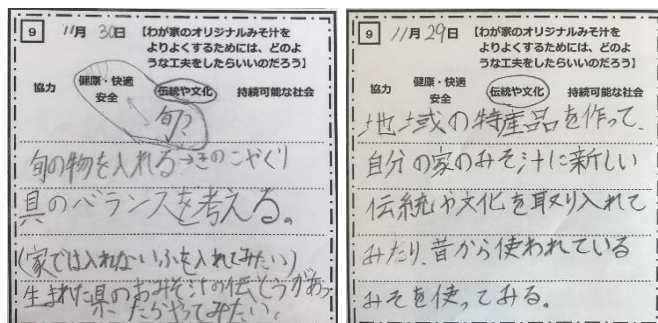 9 11月30日 【わが家のオリジナルみそ汁を
よりよくするためには、どのよ
うな工夫をしたらいいのだろう】
協力 健康・快適 安全 伝統や文化 持続可能な社会
旬?
旬の物を入れる→きのこやくり
具のバランスを考える。
(家では入れないふを入れてみたい)
生まれた県のおみそ汁の伝とうがあっ
たらやってみたい。
9 11月29日 【わが家のオリジナルみそ汁を
よりよくするためには、どのよ
うな工夫をしたらいいのだろう】
協力 健康・快適 安全 伝統や文化 持続可能な社会
地域の特産品を作って、
自分の家のみそ汁に新しい
伝統や文化を取り入れて
みたり、昔から使われている
みそを使ってみる。